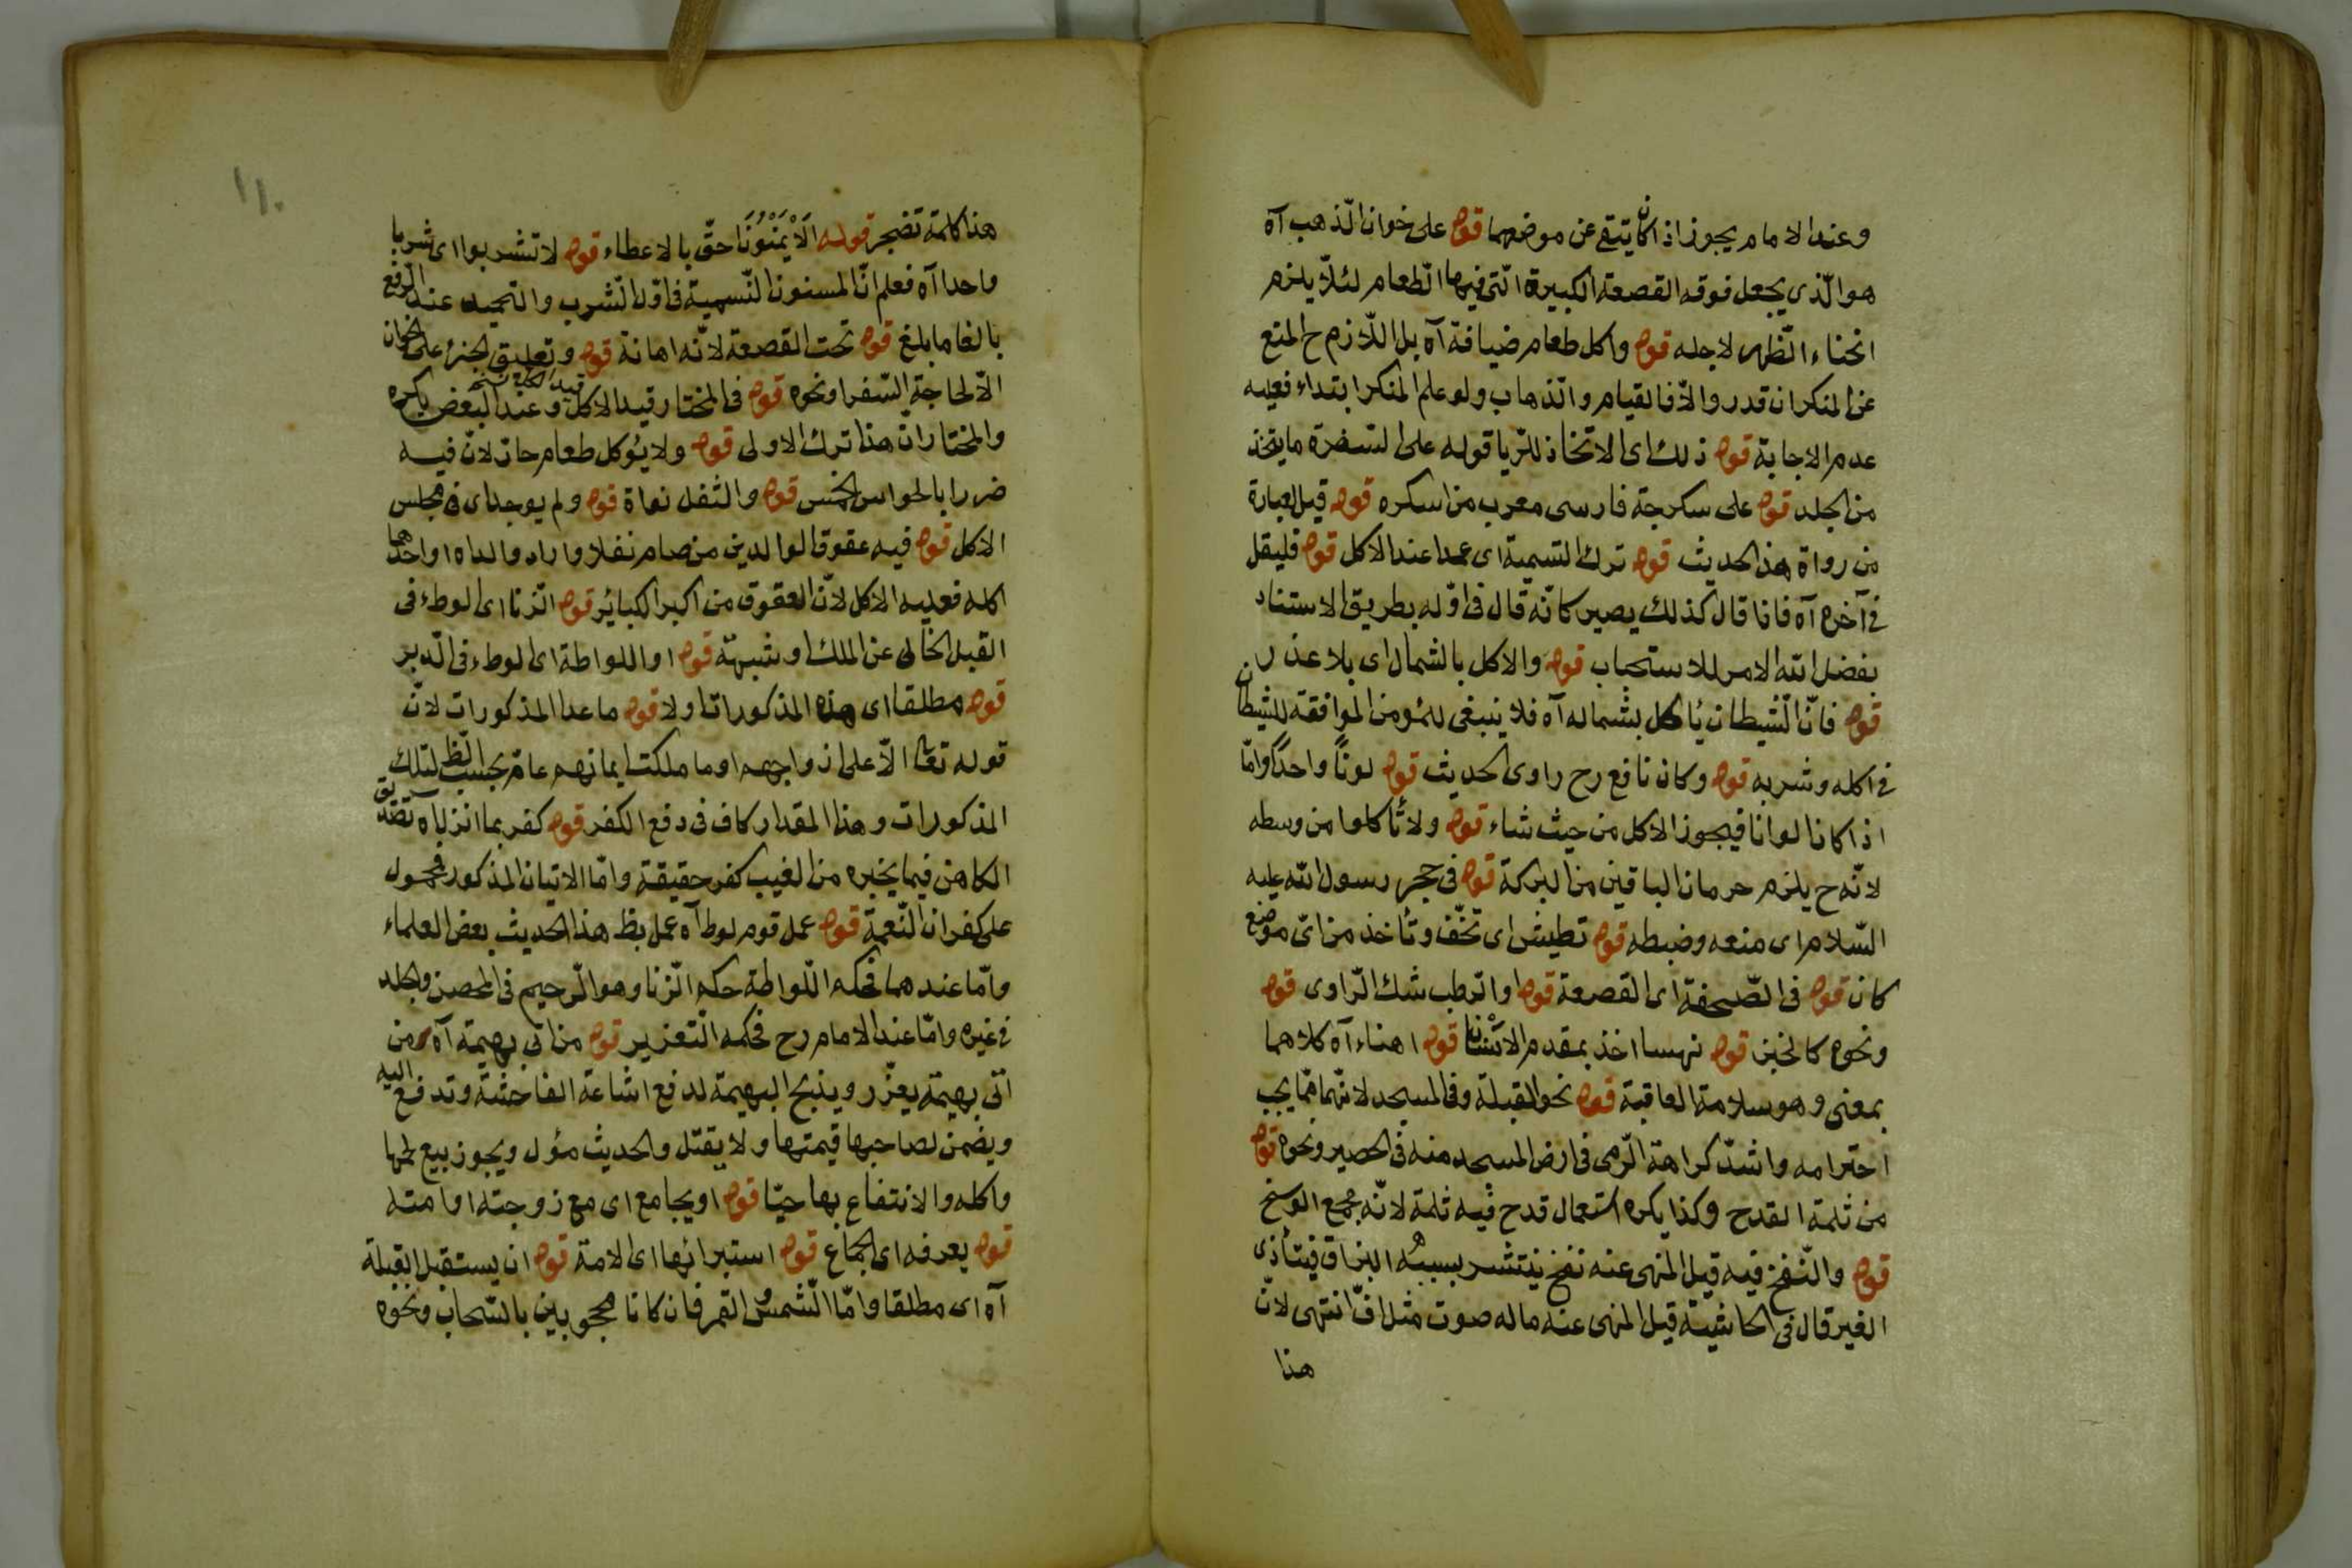 وعند الامام يجوز اذا كان يتقى عن موضعهما قوله على خوان الذهب آه
هو الّذى يجعل فوقه القصعة الكبيرة الّتى فيها الطّعام لئلاّ يلزم
انحناء الظّهر لاجله قوله واكل طعام ضيافة آه بل اللّازم ح المنع
عن المنكر ان قدر والاّ فالقيام والذهاب ولو علم المنكر ابتداء فعليه
عدم الاجابة قوله ذلك اى الاتخاذ للرّيا قوله على السفرة ما يتخذ
من الجلد قوله على سكرجة فارسى معرب من اسكره قوله قيل العبارة
من رواة هذا الحديث قوله ترك التسمية اى عمدا عند الاكل قوله فليقل
فى آخره آه فاذا قال كذلك يصير كانّه قال فى اوّله بطريق الاستناد
بفضل الله الامر للاستحباب قوله والاكل بالشمال اى بلا عذر
قوله فانّ الشّيطان يأكل بشماله آه فلا ينبغى للمؤمن الموافقة للشيطان
فى اكله وشربه قوله وكان نافع رح راوى الحديث قوله لونًا واحدًا وامّا
اذا كانا لوانا فيجوز الاكل من حيث شاء قوله ولا تأكلوا من وسطه
لانّه ح يلزم حرمان الباقين من البركة قوله فى حجر رسول الله عليه
السّلام اى منعه وضبطه قوله تطيش اى تخفّف وتأخذ من اىّ موضع
كان قوله فى الصّحفة اى القصعة قوله او الرطب شك الرّاوى قوله
ونحوه كالخبز قوله نهسا اخذ بمقدم الاسْنان قوله اهناء آه كلاهما
بمعنى وهو سلامة العاقبة قوله نحو القبلة وفى المسجد لانّهما ممّا يجب
احترامه واشدّ كراهة الرّمى فى ارض المسجد منه فى الحصير ونحوه قوله
من ثلمة القدح وكذا يكره استعمال قدح فيه ثلمة لانّه مجمع الوسخ
قوله والنّفخ فيه قيل المنهى عنه نفخ ينتشر بسببه البزاق فيتأذى
الغير قال فى الحاشية قيل المنهى عنه ماله صوت مثل افّ انتهى لانّ
هذا
١١٠
هذا كلمة تضجر قوله الاَيْمَنُونَ احقّ بالاعطاء قوله لا تشربوا اى شربا
واحدا آه فعلم انّ المسنون التّسمية فى اوّل الشّرب والتحميد عند الرّفع
بالغا ما بلغ قوله تحت القصعة لانّه اهانة قوله وتعليق الخبز على الخوان
الاّ لحاجة السّفر او نحوه قوله فى المختار قيد الاكل وعند البعض يكره
والمختار انّ هذا ترك الاولى قوله ولا يؤكل طعام حار لانّ فيه
ضررا بالحواس الخمس قوله والثفل نواة قوله ولم يوجد اى فى مجلس
الاكل قوله فيه عقوق الوالدين من صام نفلا واراد والداه او احدهما
اكله فعليه الاكل لانّ العقوق من اكبر الكبائر قوله الزّنا اى الوطء فى
القبل الخالى عن الملك وشبهة قوله او اللواطة اى الوطء فى الدبر
قوله مطلقا اى هذه المذكورات اولا قوله ما عدا المذكورات لانّ
قوله تعالى الاّ على ازواجهم او ما ملكت ايمانهم عامّ بحسب الظ لتلك
المذكورات وهذا المقدار كاف فى دفع الكفر قوله كفر بما انزل آه تصديق
الكاهن فيما يخبره من الغيب كفر حقيقة وامّا الاتيان المذكور فمحمول
على كفران النّعمة قوله عمل قوم لوط آه عمل بظ هذا الحديث بعض العلماء
وامّا عندهما فحكم اللّواطة حكم الزّنا وهو الرّجم فى المحصن والجلد
فى غيره وامّا عند الامام رح فحكمه التّعزير قوله من اتى بهيمة آه من
اتى بهيمة يعزّر ويذبح البهيمة لدفع اشاعة الفاحشة وتدفع اليه
ويضمن لصاحبها قيمتها ولا يقتل والحديث مؤل ويجوز بيع لحمها
واكله والانتفاع بها حيّا قوله او يجامع اى مع زوجته او امته
قوله يعرفه اى الجماع قوله استبرائها اى الامة قوله ان يستقبل القبلة
آه اى مطلقا وامّا الشّمس والقمر فان كانا محجوبين بالسّحاب ونحوه